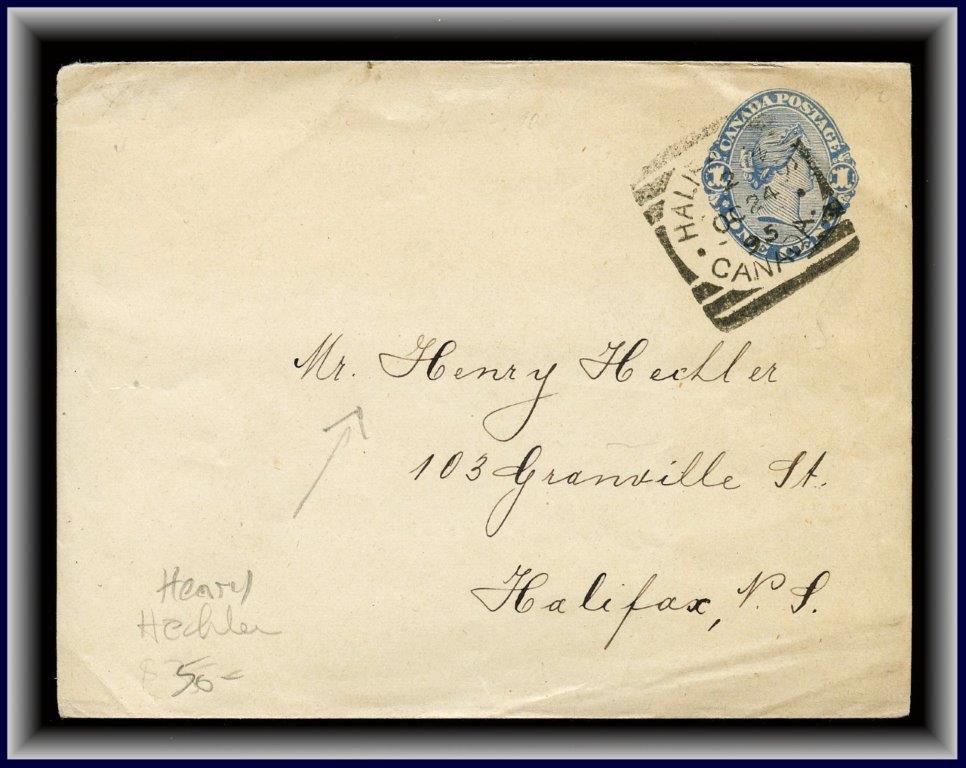 CANADA POSTAGE
1 1
ONE CENT
CANADA.
Mr. Henry Hechler
103 Granville St.
Halifax, N. S.
Henry
Hechler
$50-